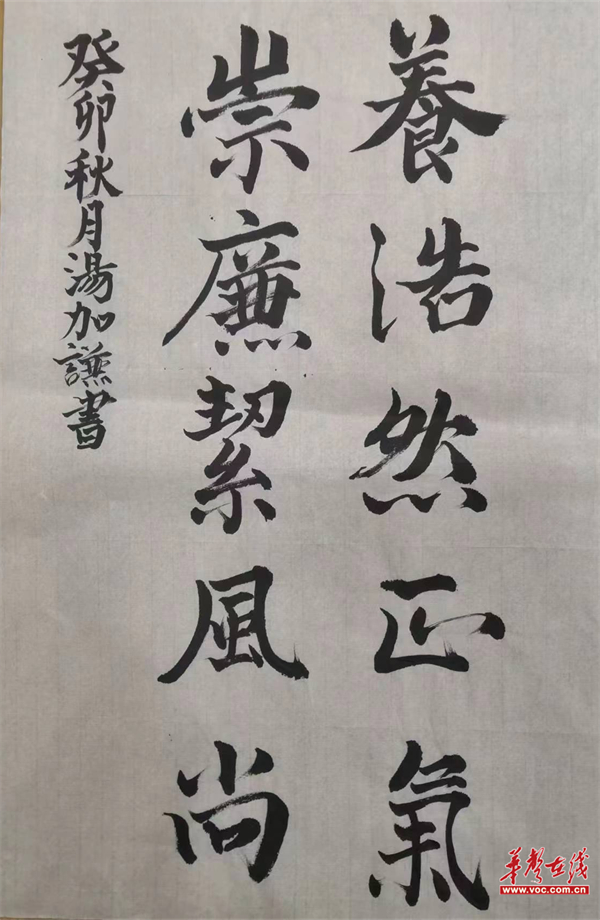 養浩然正氣
崇廉絜風尚
癸卯秋月湯加譕書
华声在线
www.voc.com.cn